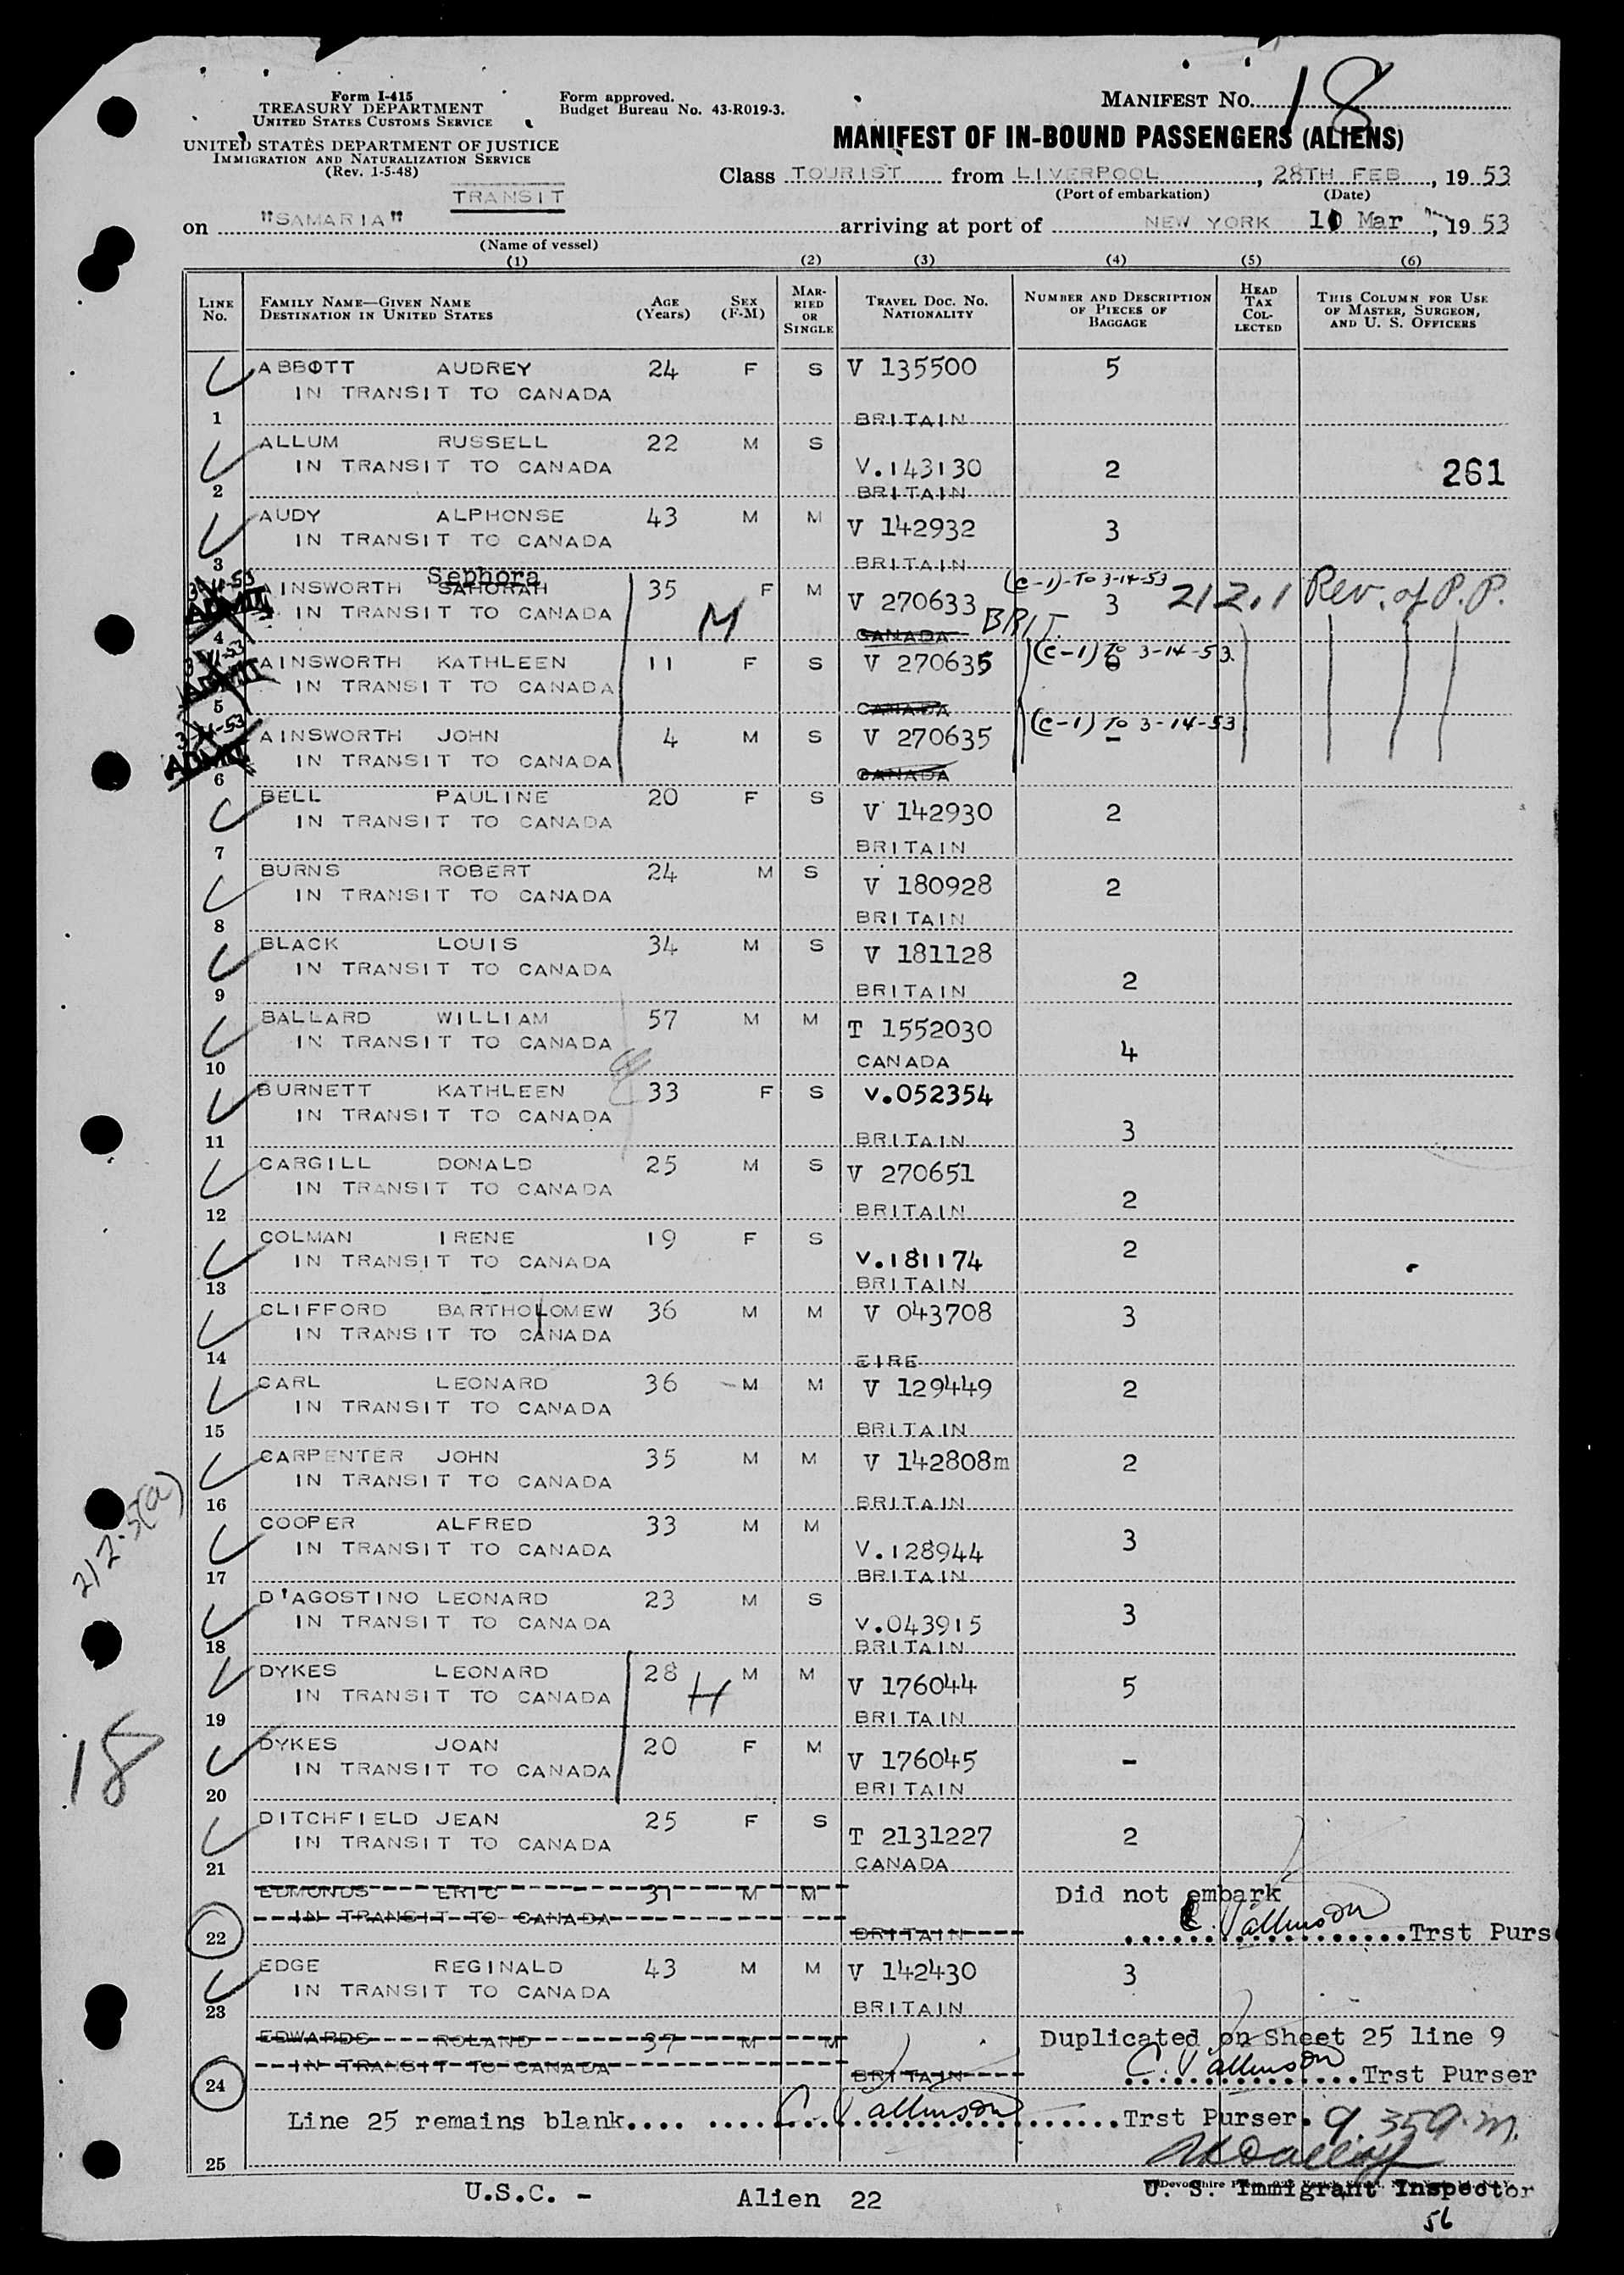 Form I-415
TREASURY DEPARTMENT
UNITED STATES CUSTOMS SERVICE
UNITED STATES DEPARTMENT OF JUSTICE
IMMIGRATION AND NATURALIZATION SERVICE
(Rev. 1-5-48)
Form approved.
Budget Bureau No. 43-R019-3.
MANIFEST No. 18
MANIFEST OF IN-BOUND PASSENGERS (ALIENS)
Class TOURIST from LIVERPOOL, 28TH FEB, 19 53
(Port of embarkation) (Date)
TRANSIT
on "SAMARIA" arriving at port of NEW YORK 10 Mar, 19 53
(Name of vessel)
(1) (2) (3) (4) (5) (6)
LINE No. FAMILY NAME—GIVEN NAME DESTINATION IN UNITED STATES AGE (Years) SEX (F-M) MARRIED OR SINGLE TRAVEL DOC. NO. NATIONALITY NUMBER AND DESCRIPTION OF PIECES OF BAGGAGE HEAD TAX COLLECTED THIS COLUMN FOR USE OF MASTER, SURGEON, AND U. S. OFFICERS
ABBOTT AUDREY 24 F S V 135500 5
IN TRANSIT TO CANADA
1 BRITAIN
ALLUM RUSSELL 22 M S
IN TRANSIT TO CANADA V.143130 2 261
2 BRITAIN
AUDY ALPHONSE 43 M M V 142932 3
IN TRANSIT TO CANADA
3 BRITAIN
Sephora
3-11-53 AINSWORTH SAHORAH 35 F M V 270633 (C-1)-To 3-14-53 3 212.1 Rev. of P.P.
ADMIT IN TRANSIT TO CANADA M
4 CANADA BRIT.
3-11-53 AINSWORTH KATHLEEN 11 F S V 270635 (C-1) To 3-14-53
ADMIT IN TRANSIT TO CANADA
5 CANADA
3-11-53 AINSWORTH JOHN 4 M S V 270635 (C-1) To 3-14-53 -
ADMIT IN TRANSIT TO CANADA
6 CANADA
BELL PAULINE 20 F S V 142930 2
IN TRANSIT TO CANADA
7 BRITAIN
BURNS ROBERT 24 M S V 180928 2
IN TRANSIT TO CANADA
8 BRITAIN
BLACK LOUIS 34 M S V 181128
IN TRANSIT TO CANADA 2
9 BRITAIN
BALLARD WILLIAM 57 M M T 1552030
IN TRANSIT TO CANADA 4
10 CANADA
BURNETT KATHLEEN 33 F S V.052354
IN TRANSIT TO CANADA 3
11 BRITAIN
CARGILL DONALD 25 M S V 270651
IN TRANSIT TO CANADA 2
12 BRITAIN
COLMAN IRENE 19 F S 2
IN TRANSIT TO CANADA V.181174
13 BRITAIN
CLIFFORD BARTHOLOMEW 36 M M V 043708 3
IN TRANSIT TO CANADA
14 EIRE
CARL LEONARD 36 M M V 129449 2
IN TRANSIT TO CANADA
15 BRITAIN
CARPENTER JOHN 35 M M V 142808m 2
IN TRANSIT TO CANADA
16 BRITAIN
212.5(a)
COOPER ALFRED 33 M M 3
IN TRANSIT TO CANADA V.128944
17 BRITAIN
D'AGOSTINO LEONARD 23 M S 3
IN TRANSIT TO CANADA V.043915
18 BRITAIN
DYKES LEONARD 28 H M M V 176044 5
IN TRANSIT TO CANADA
19 BRITAIN
18
DYKES JOAN 20 F M V 176045 -
IN TRANSIT TO CANADA
20 BRITAIN
DITCHFIELD JEAN 25 F S T 2131227 2
IN TRANSIT TO CANADA
21 CANADA
EDMONDS ERIC 31 M M Did not embark
IN TRANSIT TO CANADA
22 BRITAIN Trst Purs
EDGE REGINALD 43 M M V 142430 3
IN TRANSIT TO CANADA
23 BRITAIN
EDWARDS ROLAND 37 M M Duplicated on Sheet 25 line 9
IN TRANSIT TO CANADA
24 BRITAIN Trst Purser
Line 25 remains blank.... Trst Purser.
25
U.S.C. - Alien 22 U. S. Immigrant Inspector
56